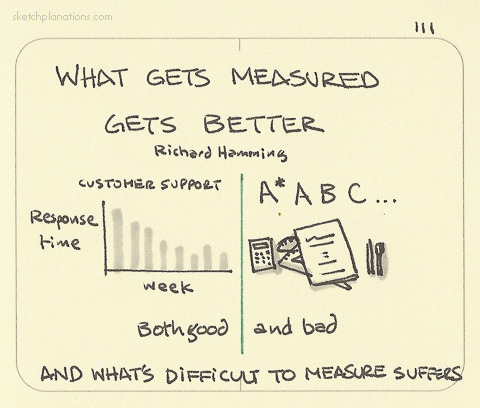 sketchplanations.com
111
WHAT GETS MEASURED
GETS BETTER
Richard Hamming
CUSTOMER SUPPORT
Response
time
week
A* A B C ...
Both good and bad
AND WHAT'S DIFFICULT TO MEASURE SUFFERS